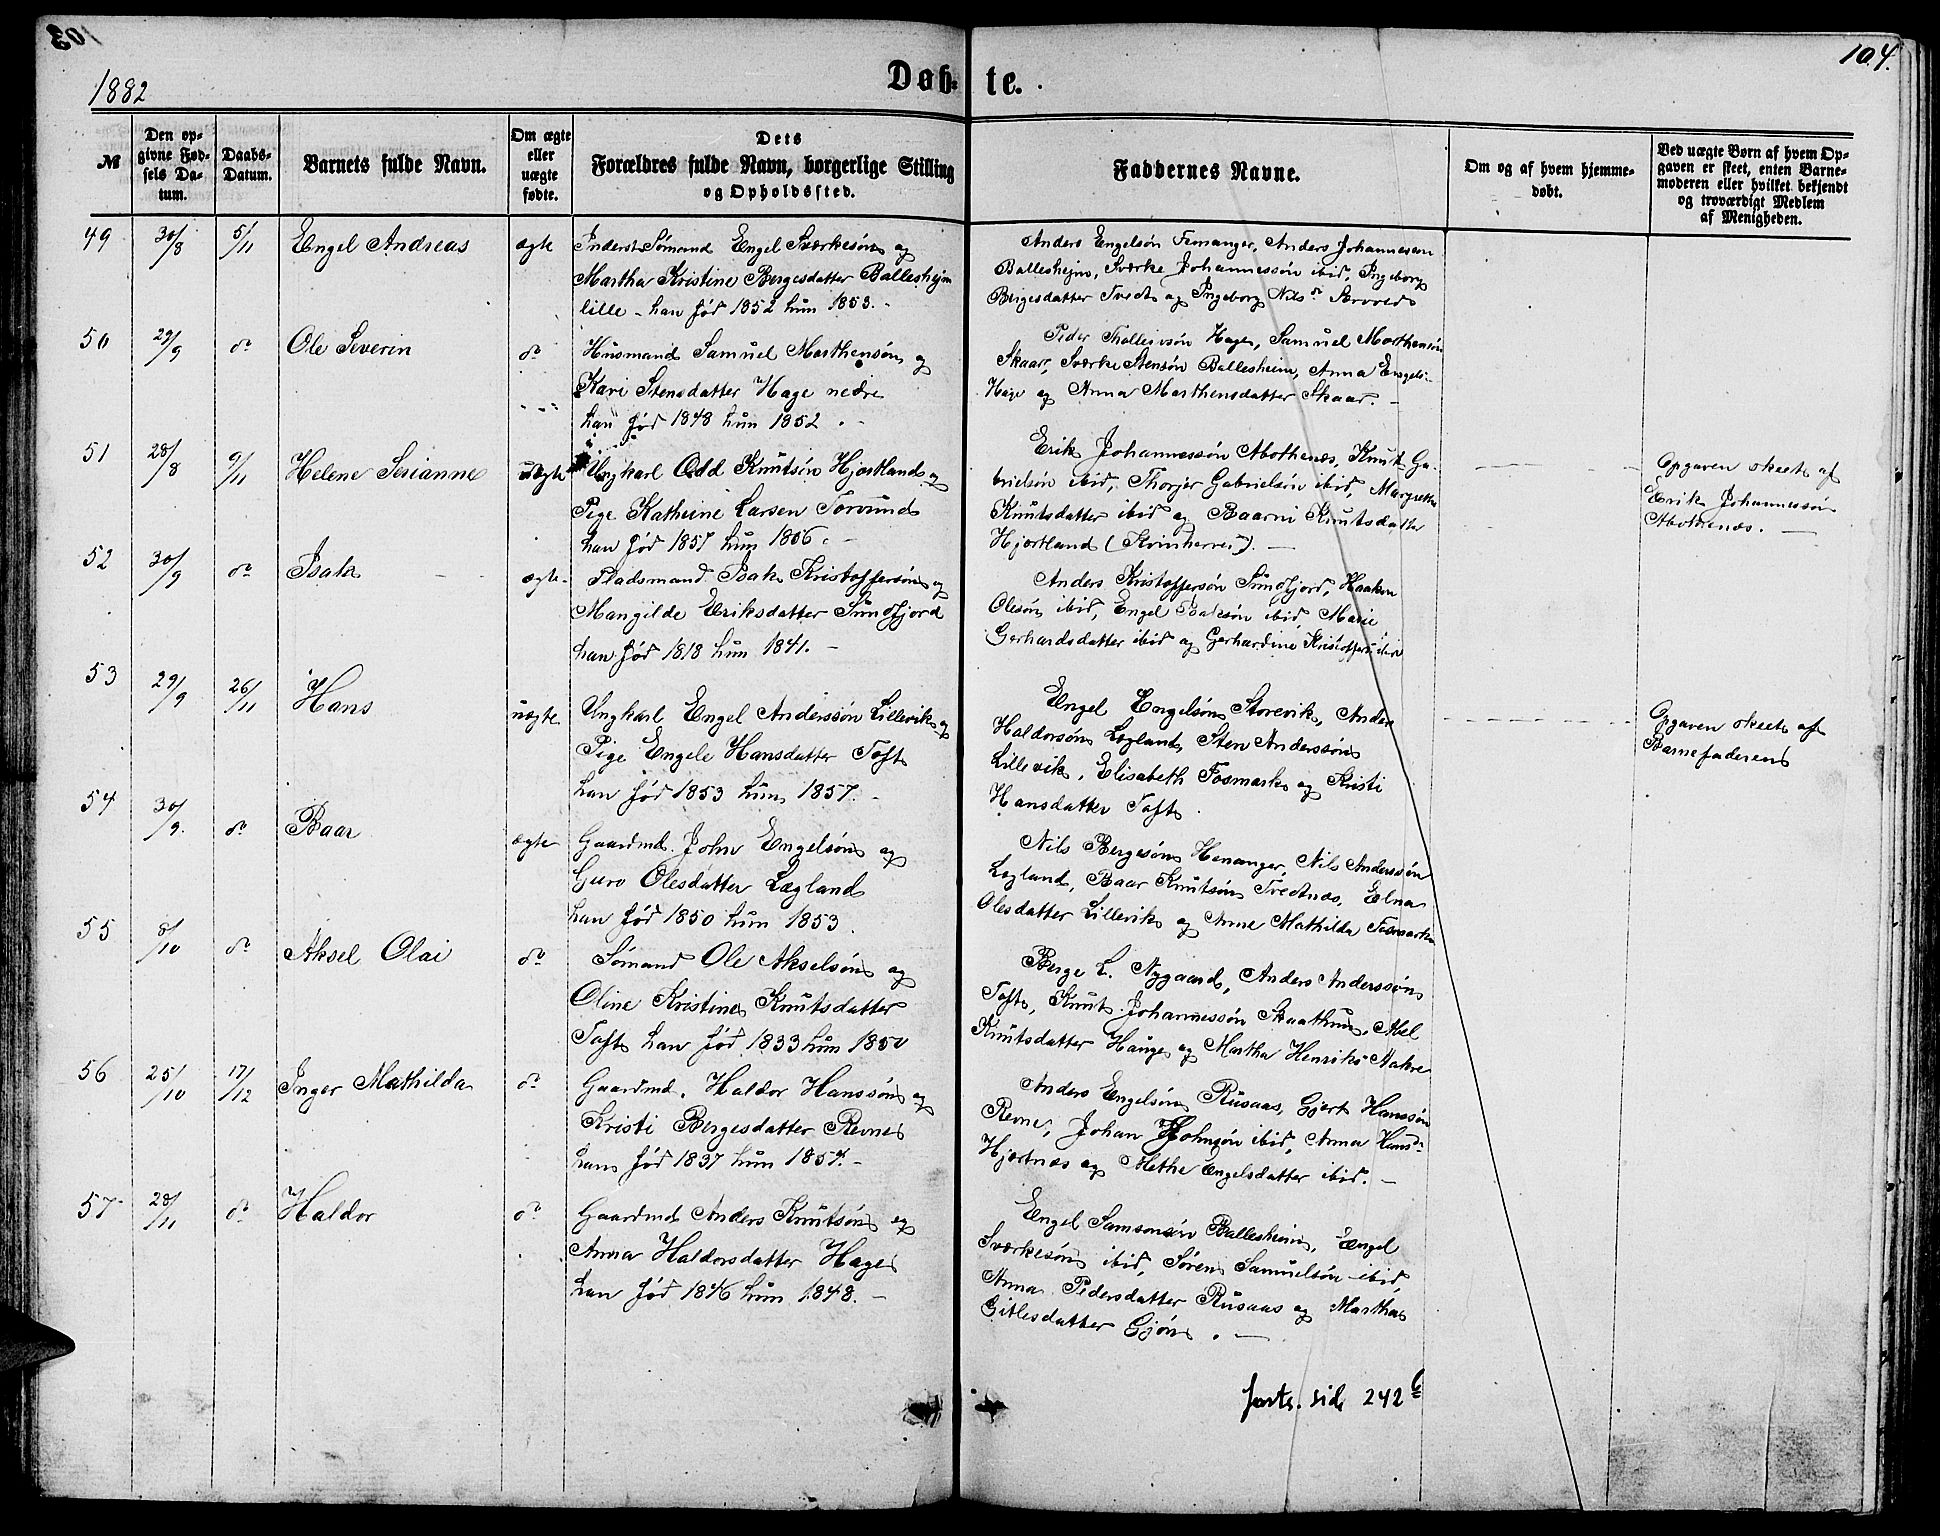 104.
1882
Døb- te.
№
Den opgivne Fødsels Datum.
Daabs-Datum.
Barnets fulde Navn.
Om ægte eller uægte fødte.
Dets Forældres fulde Navn, borgerlige Stilling og Opholdssted.
Faddernes Navne.
Om og af hvem hjemmedøbt.
Ved uægte Børn af hvem Opgaven er skeet, enten Barnemoderen eller hvilket bekjendt og troværdigt Medlem af Menigheden.
49 30/8 5/11 Engel Andreas ægte
Inderst Sømand Engel Sværkesøn og
Martha Kristine Bergesdatter Ballesheim
lille - han fød 1852 hun 1853. -
Anders Engelsøn Femanger, Anders Johannesen
Ballesheim, Sværke Johannessøn ibid, Ingeborg
Bergesdatter Tvedt og Ingeborg Nilsdr
50 29/9 do Ole Severin do
Husmand Samuel Morthensøn og
Kari Stensdatter Hage nedre
han fød 1848 hun 1852. -
Peder Hage, Samuel Morthensøn
Skaar, Sværke Stensøn Ballesheim, Anna Engels-
Hage og Anna Marthensdatter Skaar. -
51 28/8 9/11 Helene Serianne uægte
Ungkarl Odd Knutsøn Hjortland og
Pige Kathrine Larsen Torvund
han fød 1857 hun 1856. -
Erik Johannessøn Mothenæs, Knut Ga-
brielsøn ibid, Thorjer Gabrielsøn ibid, Margrethe
Knutsdatter ibid og Baarni Knutsdatter
Hjortland (Kvinherred). -
Opgaven skeet af
Erik Johannessøn
Mothenæs. -
52 30/9 do Isak ægte.
Pladsmand Isak Kristoffersøn og
Mangilde Eriksdatter Sundfjord
han fød 1818 hun 1841. -
Anders Kristoffersøn Sundfjord, Haaken
Olesøn ibid, Engel Isaksøn ibid, Marie
Gerhardsdatter ibid og Gerhardine Kristoffers ibid
53 29/9 26/11 Hans uægte
Ungkarl Engel Anderssøn Lillevik og
Pige Engele Hansdatter Toft
han fød 1853 hun 1857. -
Engel Engelsøn Storevik, Anders
Haldorsøn Lægland, Sten Anderssøn
Lillevik, Elisabeth Fosmark og Kristi
Hansdatter Toft.
Opgaven skeet af
Barnefaderen
54 30/9. do Baar ægte
Gaardmd. John Engelsøn og
Guro Olesdatter Lægland
han fød 1850 hun 1853.
Nils Bergesøn Henanger, Nils Anderssøn
Lægland, Baar Knutsøn Tvedtnæs, Elna
Olesdatter Lillevik og Anne Mathilda Fosmark
55 8/10 do Aksel Olai do
Sømand Ole Akselsøn og
Oline Kristine Knutsdatter
Toft han fød 1833 hun 1850
Berge L. Nygaard, Anders Anderssøn
Toft, Knut Johannessøn Skaathun, Abel
Knutsdatter Hauge og Martha Henriks- Aakre
56 25/10 17/12 Inger Mathilda do
Gaardmd. Haldor Hanssøn og
Kristi Bergesdatter Revne
han fød 1837 hun 1857. -
Anders Engelsøn Rusaas, Gjert Hanssøn
Revne, Johan Johnsøn ibid, Anna Hansdr
Hjortnæs og Methe Engelsdatter ibid. -
57 28/11 do Haldor do
Gaardmd Anders Knutsøn og
Anna Haldorsdatter Hage
han fød 1846 hun 1848. -
Engel Samsonsøn Ballesheim, Engel
Sværkesøn ibid, Søren Samuelsøn ibid,
Anna Pedersdatter Rusaas og Martha
Gitlesdatter Gjøn. -
forts. side 242 b